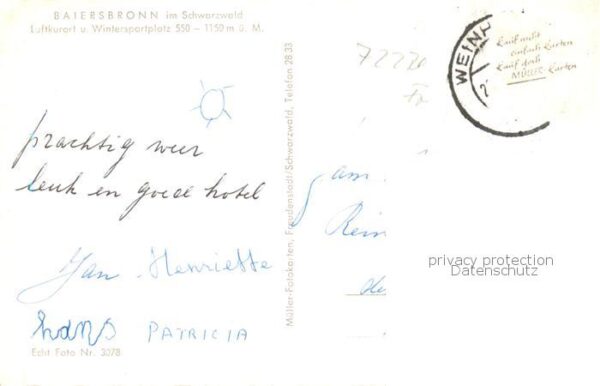 BAIERSBRONN im Schwarzwald
Luftkurort u. Wintersportplatz 550 – 1150 m ü. M.
prachtig weer
leuk en goede hotel
Jan Henriette
hans PATRICIA
Echt Foto Nr. 3078
Müller-Fotokarten, Freudenstadt/Schwarzwald, Telefon 2833
7222
WEIN
Kauf nicht
einfach Karten
Kauf doch
MÜLLER-Karten
Fam.
Rein
privacy protection
Datenschutz